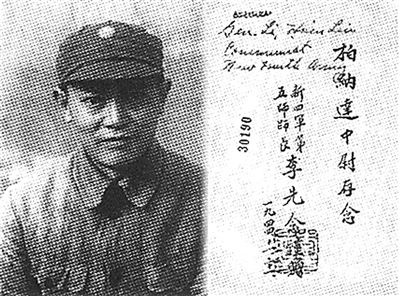 Gen. Li Hsien Lien
Communist
New Fourth Army
柏納達中尉存念
新四軍第
五師師長
李先念
30190
一九四